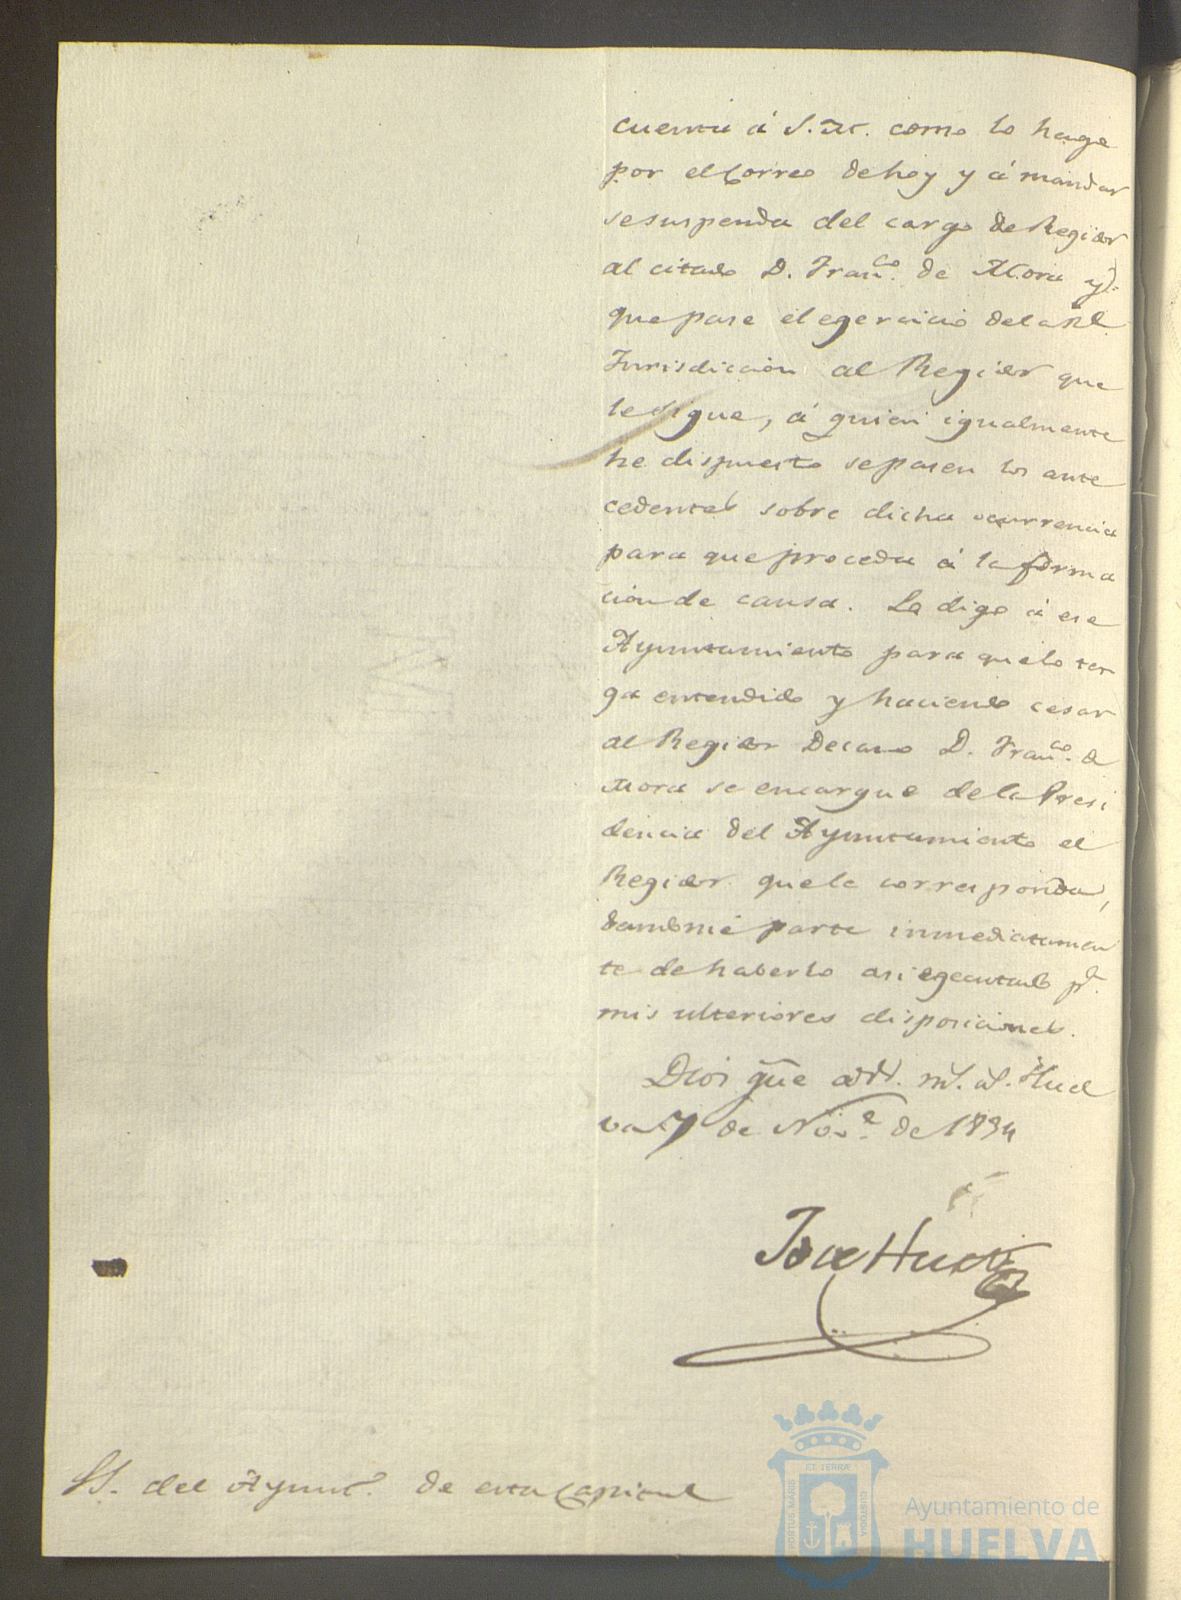 cuenta á S. M. como lo hago
por el Correo de hoy y á mandar
se suspenda del cargo de Regidor
al citado D. Fran.co de Mora y
que pase el egercicio de la Rl.
Jurisdiccion al Regidor que
le sigue, á quien igualmente
he dispuesto se pasen los ante
cedentes sobre dicha ocurrencia
para que proceda á la forma
cion de causa. Lo digo á ese
Ayuntamiento para que lo ten
ga entendido y haciendo cesar
al Regidor Decano D. Fran.co de
Mora se encargue de la Presi
dencia del Ayuntamiento el
Regidor que le corresponda,
dandome parte inmediatamen
te de haberlo asi egecutado pa.
mis ulteriores disposiciones.
Dios gue á VV. ms. as. Huel
va 7 de Nov.e de 1834
Jose Huet
SS. del Ayunt.o de esta Capital
PORTUS MARIS
ET TERRÆ
CUSTODIA
Ayuntamiento de
HUELVA